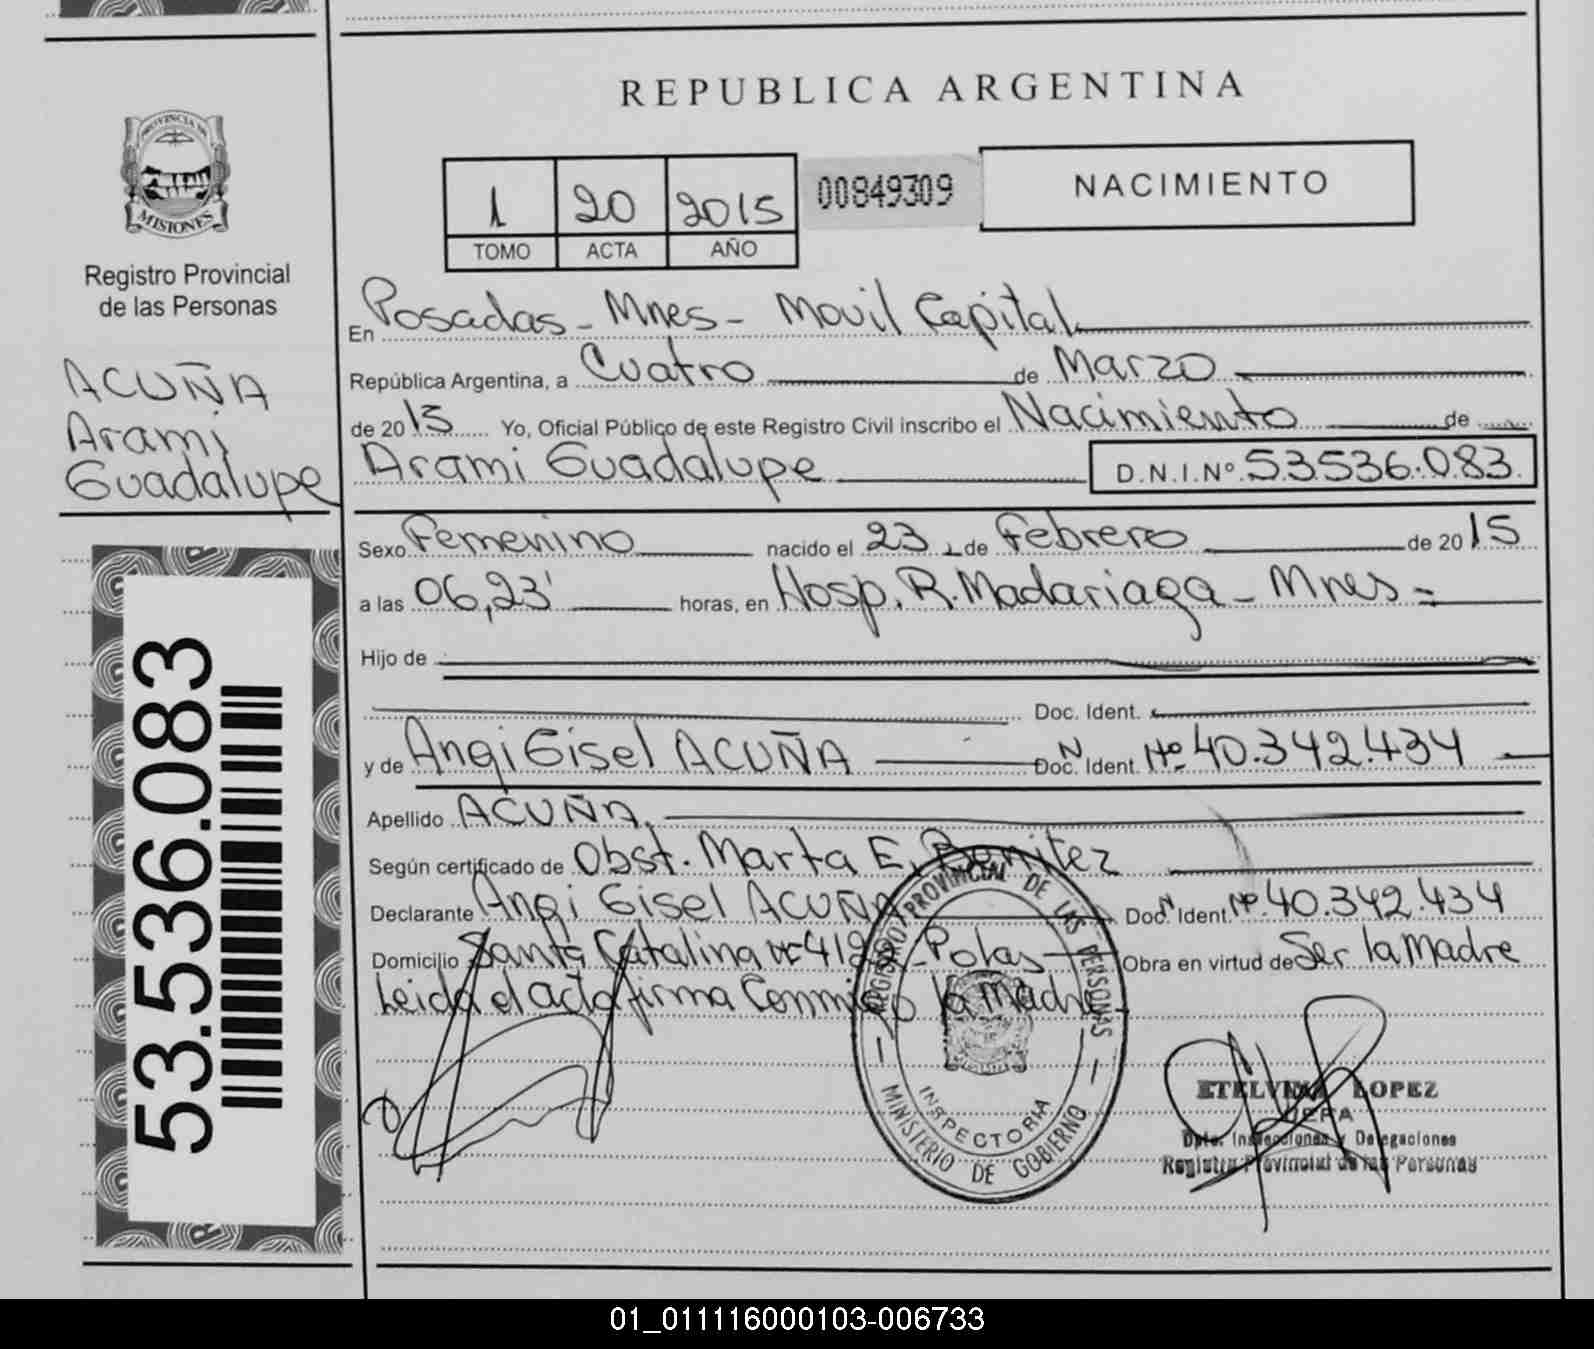 REPUBLICA ARGENTINA
PROVINCIA DE
MISIONES
Registro Provincial
de las Personas
1 20 2015
TOMO ACTA AÑO
00849309
NACIMIENTO
ACUÑA
Arami
Guadalupe
53.536.083
En Posadas - Mnes - Movil Capital
República Argentina, a Cuatro de Marzo
de 2015 Yo, Oficial Público de este Registro Civil inscribo el Nacimiento de
Arami Guadalupe D.N.I.Nº 53.536.083.
Sexo Femenino nacido el 23 de Febrero de 2015
a las 06,23' horas, en Hosp. R. Madariaga - Mnes -
Hijo de
Doc. Ident.
y de Angi Gisel ACUÑA Doc. Ident. N Nº 40.342.434
Apellido ACUÑA.
Según certificado de Obst. Marta E. Benitez
Declarante Angi Gisel ACUÑA Doc. Ident. Nº 40.342.434
Domicilio Santa Catalina Nº 412 Obra en virtud de Ser la Madre
Leida el acta firma Conmigo la Madre
REGISTRO PROVINCIAL DE LAS PERSONAS
INSPECTORIA
MINISTERIO DE GOBIERNO
ETELVINA LOPEZ
JEFA
Dpto. Inspecciones y Delegaciones
Registro Provincial de las Personas
01_011116000103-006733